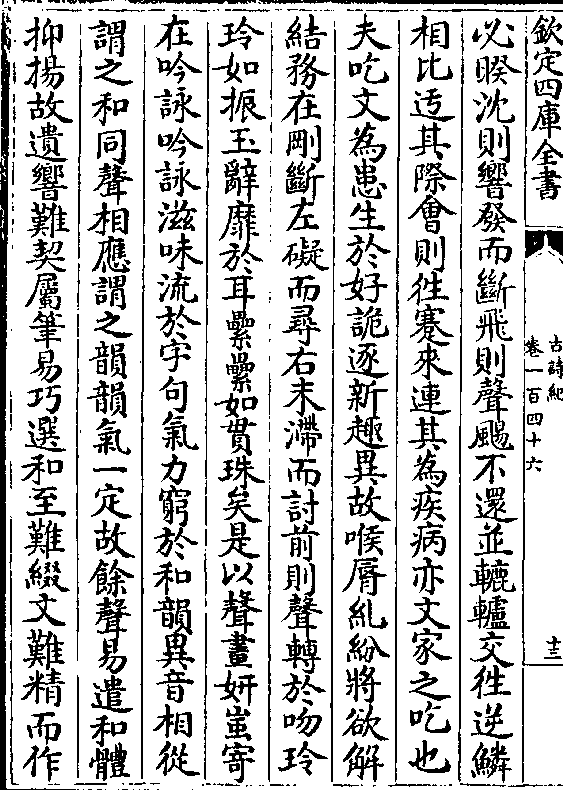 欽定四庫全書
古詩紀
卷一百四十六
十三
必暌沈則響發而斷飛則聲颺不還並轆轤交徃逆鱗
相比迕其際會則徃蹇來連其為疾病亦文家之吃也
夫吃文為患生於好詭逐新趣異故喉脣糺紛將欲解
結務在剛斷左礙而尋右末滯而討前則聲轉於吻玲
玲如振玉辭靡於耳纍纍如貫珠矣是以聲畫妍蚩寄
在吟詠吟詠滋味流於字句氣力窮於和韻異音相從
謂之和同聲相應謂之韻韻氣一定故餘聲易遣和體
抑揚故遺響難契屬筆易巧選和至難綴文難精而作